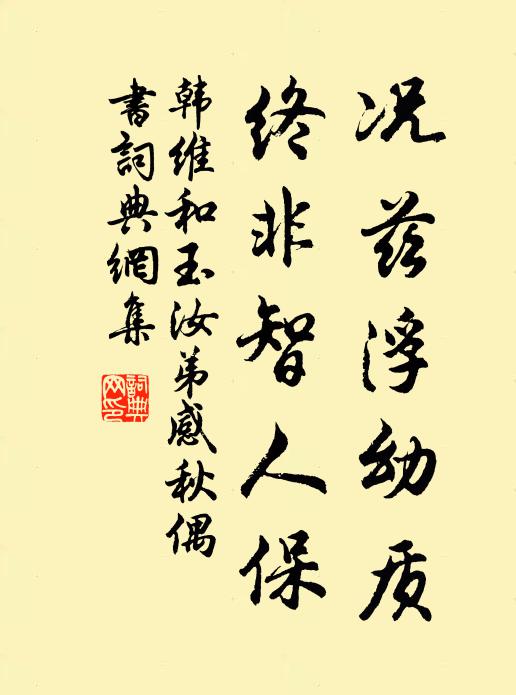 况兹浮幼质
终非智人保
韩维和玉汝弟感秋偶
书词典网集
詞典网印